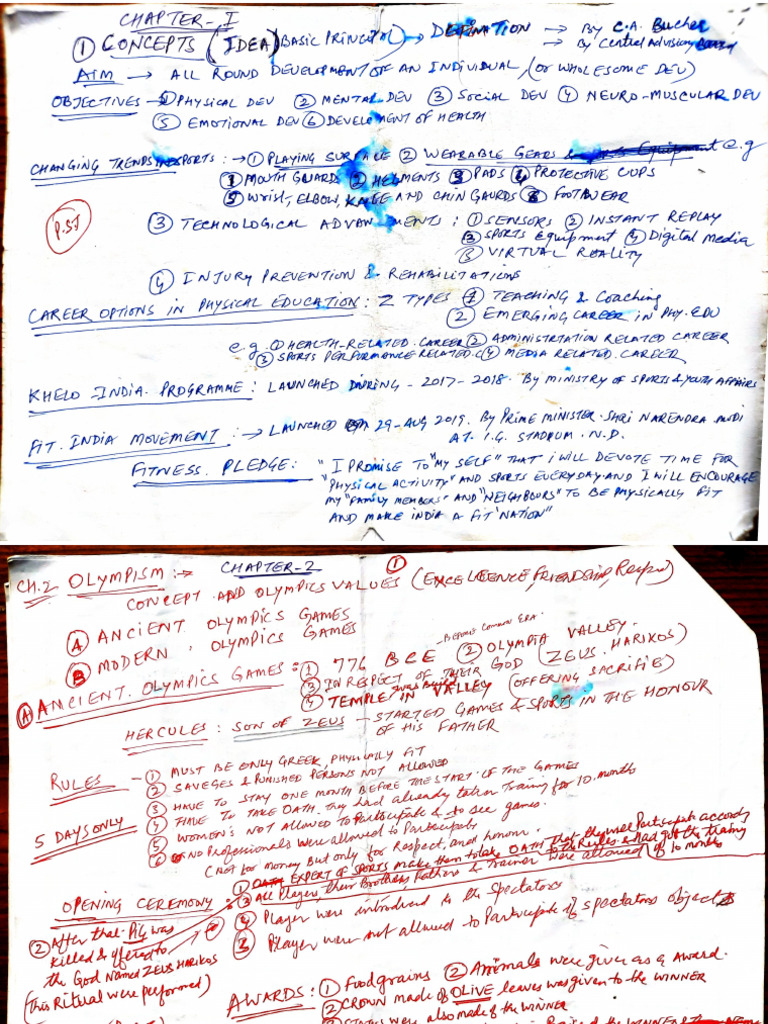 CHAPTER-I
① CONCEPTS (IDEA) (BASIC PRINCIPAL) → DEFINATION → By C.A. Bucher
→ By Central Advisory Board
AIM → ALL ROUND DEVELOPMENT OF AN INDIVIDUAL, (or WHOLESOME DEV)
OBJECTIVES → ① PHYSICAL DEV ② MENTAL DEV ③ SOCIAL DEV ④ NEURO-MUSCULAR DEV
⑤ EMOTIONAL DEV ⑥ DEVELOPMENT OF HEALTH
CHANGING TRENDS IN SPORTS: → ① PLAYING SURFACE ② WEARABLE GEARS & Sports Equipment e.g
① MOUTH GUARDS ② HELMENTS ③ PADS ④ PROTECTIVE CUPS
⑤ WRIST, ELBOW, KNEE AND CHIN GAURDS ⑥ FOOTWEAR
P.S.I
③ TECHNOLOGICAL ADVANCEMENTS: ① SENSORS ② INSTANT REPLAY
③ SPORTS Equipment ④ Digital Media
⑤ VIRTUAL REALITY
④ INJURY PREVENTION & REHABILITATIONS
CAREER OPTIONS IN PHYSICAL EDUCATION: 2 TYPES ① TEACHING & Coaching
② EMERGING CAREER IN PHY. EDU
e.g. ① HEALTH-RELATED CAREER ② ADMINISTRTATION RELATED CAREER
③ SPORTS PERFORMANCE RELATED.C ④ MEDIA RELATED. CAREER
KHELO-INDIA. PROGRAMME: LAUNCHED DURING - 2017-2018. By MINISTRY OF SPORTS & YOUTH AFFAIRS
FIT. INDIA MOVEMENT: → LAUNCHED ON 29-AUG 2019. By PRIME MINISTER. SHRI NARENDRA MODI
AT. I.G. STADIUM. N.D.
FITNESS. PLEDGE: "I PROMISE TO "MY SELF" THAT I WILL DEVOTE TIME FOR
"PHYSICAL ACTIVITY" AND SPORTS EVERYDAY AND I WILL ENCOURAGE
MY "FAMILY MEMBERS" AND "NEIGHBOURS" TO BE PHYSICALLY FIT
AND MAKE INDIA A FIT "NATION"
CHAPTER-2 ①
CH.2 OLYMPISM: →
CONCEPT AND OLYMPICS VALUES (EXCELLEENCE, FRIENDSHIP, Respect)
Ⓐ ANCIENT OLYMPICS GAMES
Ⓑ MODERN OLYMPICS GAMES
BEFORE COMMON ERA
Ⓐ ANCIENT. OLYMPICS GAMES: ① 776 BCE ② OLYMPIA VALLEY.
③ IN RESPECT OF THEIR GOD (ZEUS. HARIKOS)
④ TEMPLE was Build IN VALLEY (OFFERING SACRIFIE)
HERCULES: SON OF ZEUS - STARTED GAMES & SPORTS IN THE HONOUR
OF HIS FATHER
RULES - ① MUST BE ONLY GREEK, PHYSICALLY FIT
② SAVEGES & PUNISHED PERSONS NOT ALLOWED
③ HAVE TO STAY ONE MONTH BEFORE THE START OF THE GAMES
5 DAYS ONLY ④ HAVE TO TAKE OATH. They had already taken Training for 10. months
⑤ WOMEN'S NOT ALLOWED TO Participate & to see games.
⑥ NO Professionals were allowed to Participate
(Not for money But only for Respect, and honour.
① OATH EXPERT OF SPORTS make them to take OATH that they will Participate accordy
to the Rules & had got the traing
of 10 months
OPENING CEREMONY: ② All Players, their Brothers, Fathers & Trainer were allowed
④ Player were introduced to the Spectators
③ Player were not allowed to Participate if spectators object
② After that Pig was
killed & offered to
the God Named ZEUS HARIKOS
(This Ritual were performed)
AWARDS: ① Foodgrains ② Animals were given as a Award.
② CROWN made of OLIVE leaves was given to the WINNER
were also made of the WINNER